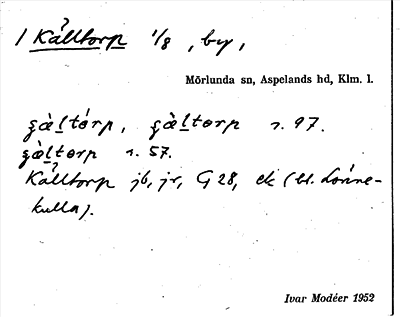 1 Kålltorp 1/8, by,
Mörlunda sn, Aspelands hd, Klm. l.
gàltórp, gàltorp s. 97.
gàltorp s. 57.
Kålltorp jb, jr, G 28, ek (bl. Lönne-
kulla).
Ivar Modéer 1952